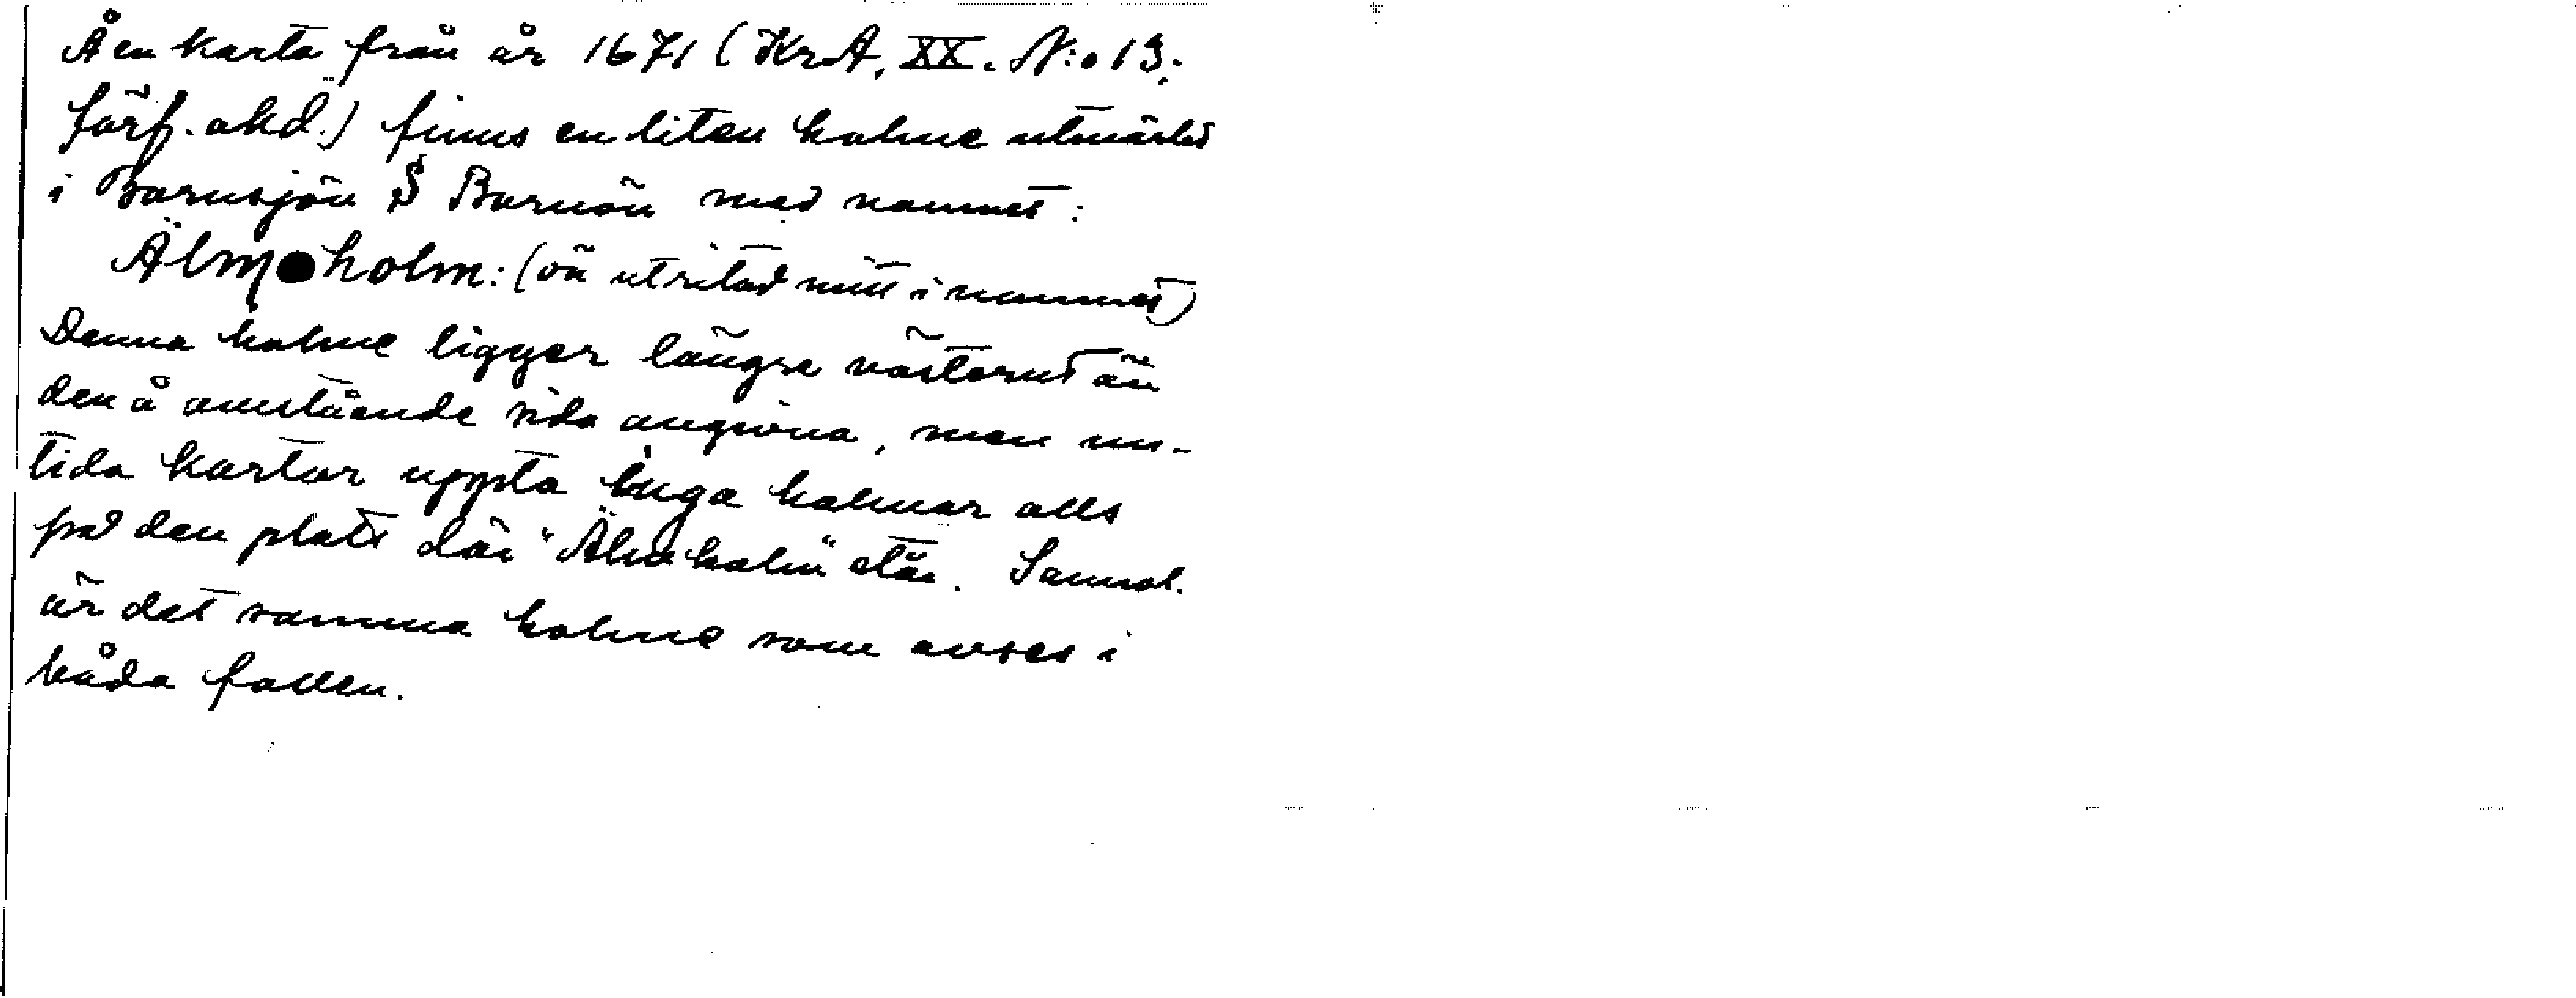 Å en karta från år 1671 (Kr.A. XX. N:o 13;
förf. okd.) finns en liten holme utmärkt
i Barnsjön S Barnön med namnet:
Älm●holm: (ön utritad mitt i namnet)
Denna holme ligger längre västerut än
den å omstående sida angivna, men nu-
tida kartor uppta inga holmar alls
på den plats där "Älmholm" står. Sannol.
är det samma holme som avses i
båda fallen.